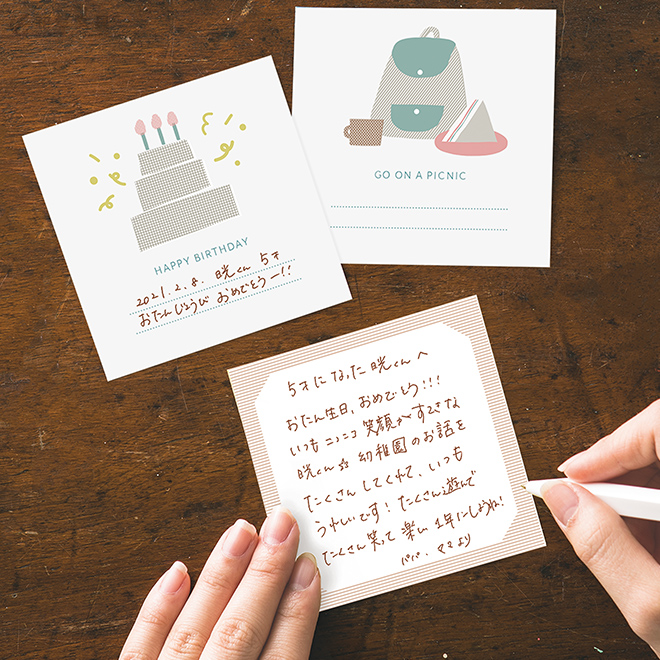 GO ON A PICNIC
HAPPY BIRTHDAY
2021.2.8. 晄くん 5才
おたんじょうび おめでとうー!!
5才になった晄くんへ
おたん生日、おめでとう!!!
いつもニコニコ笑顔がすてきな
晄くん☆ 幼稚園のお話を
たくさんしてくれて、いつも
うれしいです! たくさん遊んで
たくさん笑って楽しい1年にしようね!
パパ・ママより